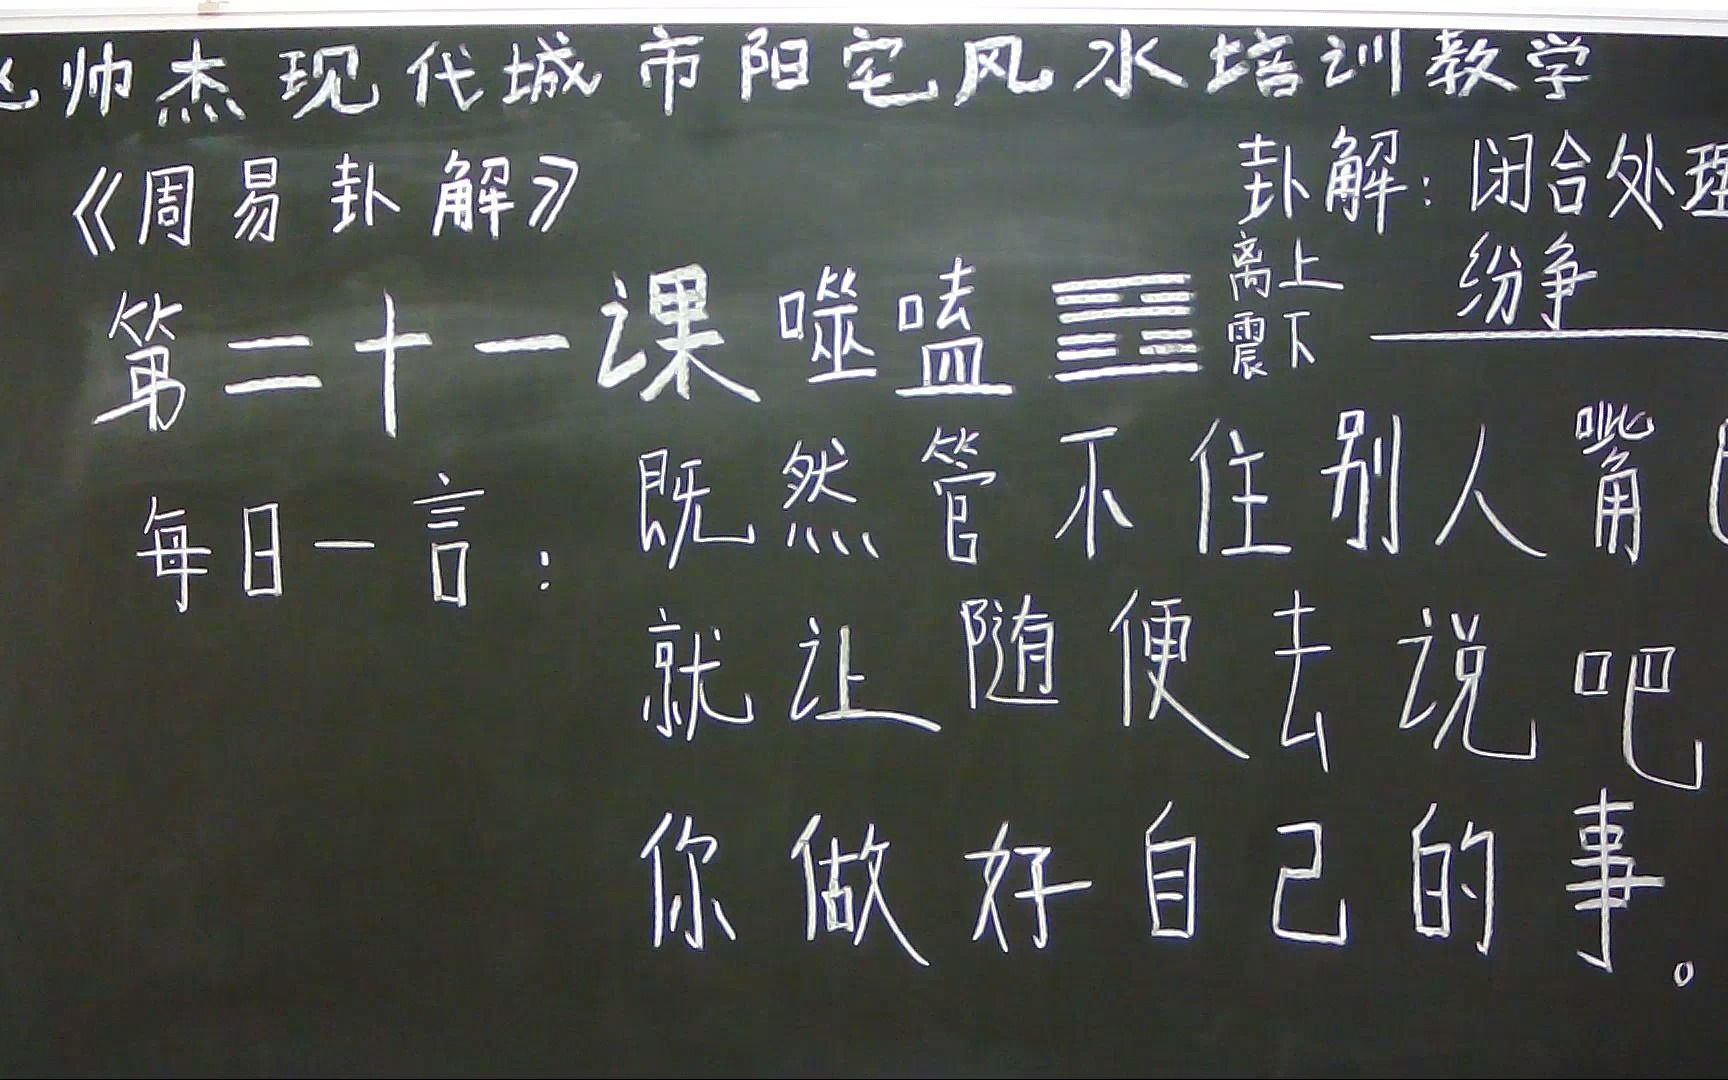 帅杰现代城市阳宅风水培训教学
《周易卦解》
卦解：闭合处理
纷争
第二十一课 噬嗑 离上
震下
每日一言：既然管不住别人嘴
就让随便去说吧
你做好自己的事。